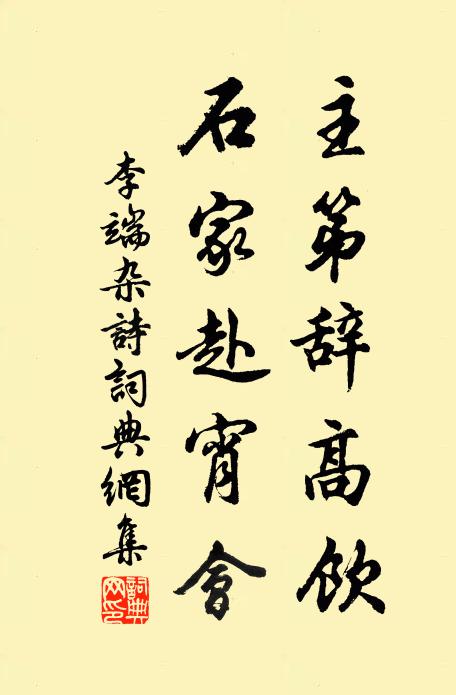 主第辞高饮
石家赴宵會
李端杂詩詞典網集
詞典网印